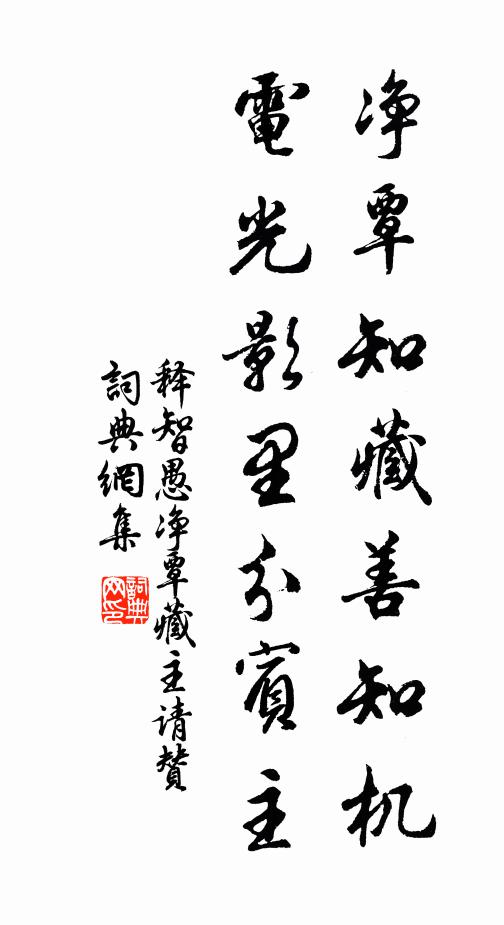 净覃知藏善知机
電光影里分賓主
释智愚净覃藏主请赞
詞典網集
詞典
网印